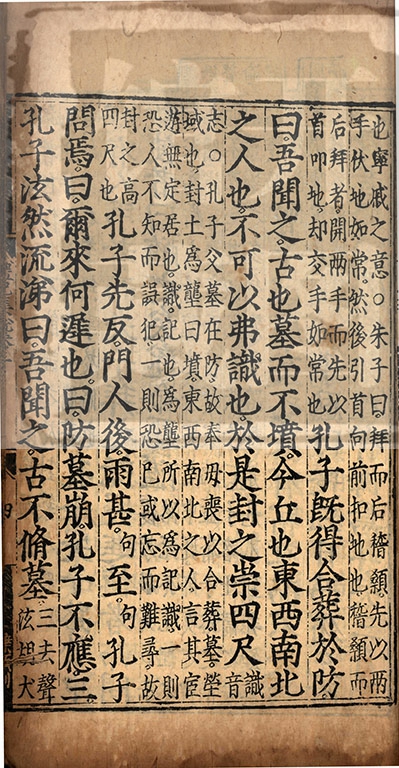 也寧戚之意○朱子曰拜而后稽顙先以兩
手伏地如常然後引首向前扣地也稽顙而
后拜者開兩手而先以
首叩地却交手如常也
孔子既得合葬於防
曰吾聞之古也墓而不墳今丘也東西南北
之人也不可以弗識也於是封之崇四尺
識
音
志○孔子父墓在防故奉母喪以合葬墓塋
域也封土為壟曰墳東西南北之人言其宦
遊無定居也識記也為壟所以為記識一則
恐人不知而誤犯一則恐已或忘而難尋故
封之高
四尺也
孔子先反門人後雨甚句至句孔子
問焉曰爾來何遲也曰防墓崩孔子不應三
孔子泫然流涕曰吾聞之古不脩墓
三去聲
泫胡犬
四